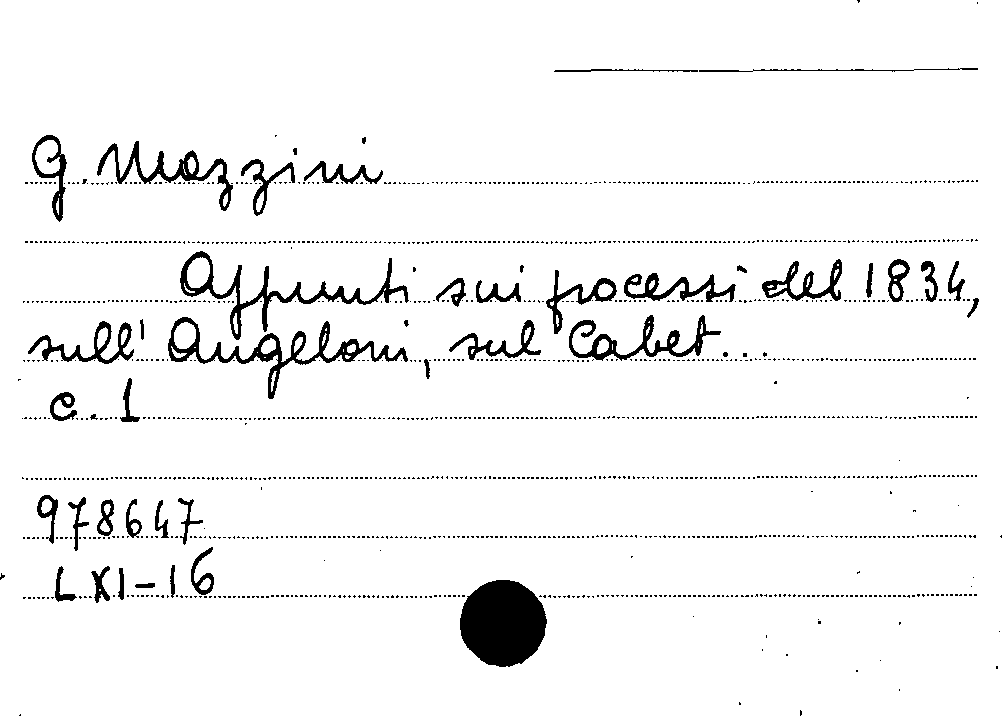 G. Mazzini
Appunti sui processi del 1834,
sull' Angeloni, sul Cabet...
c. 1
978647
LXI-16